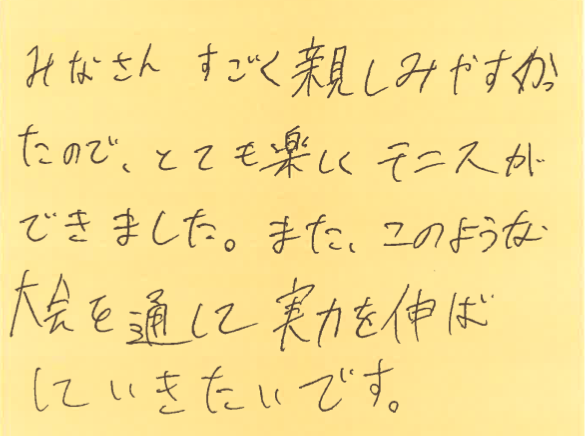 みなさん すごく親しみやすかっ
たので、とても楽しくテニスが
できました。また、このような
大会を通して実力を伸ば
していきたいです。